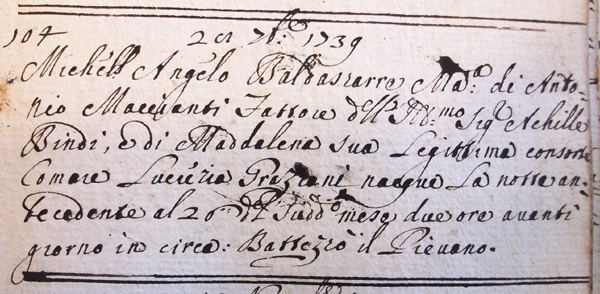 104 20 7bre 1739
Michel Angelo Baldassarre Ma.a di Anto-
nio Maccianti Fattore dell' Ill:mo Sig.r Achille
Bindi, e di Maddalena sua Legittima consorte
Comare Lucrezia Graziani nacque La notte an-
tecedente al 20 del sudd.o mese due ore avanti
giorno in circa: Battezzò il Pievano.